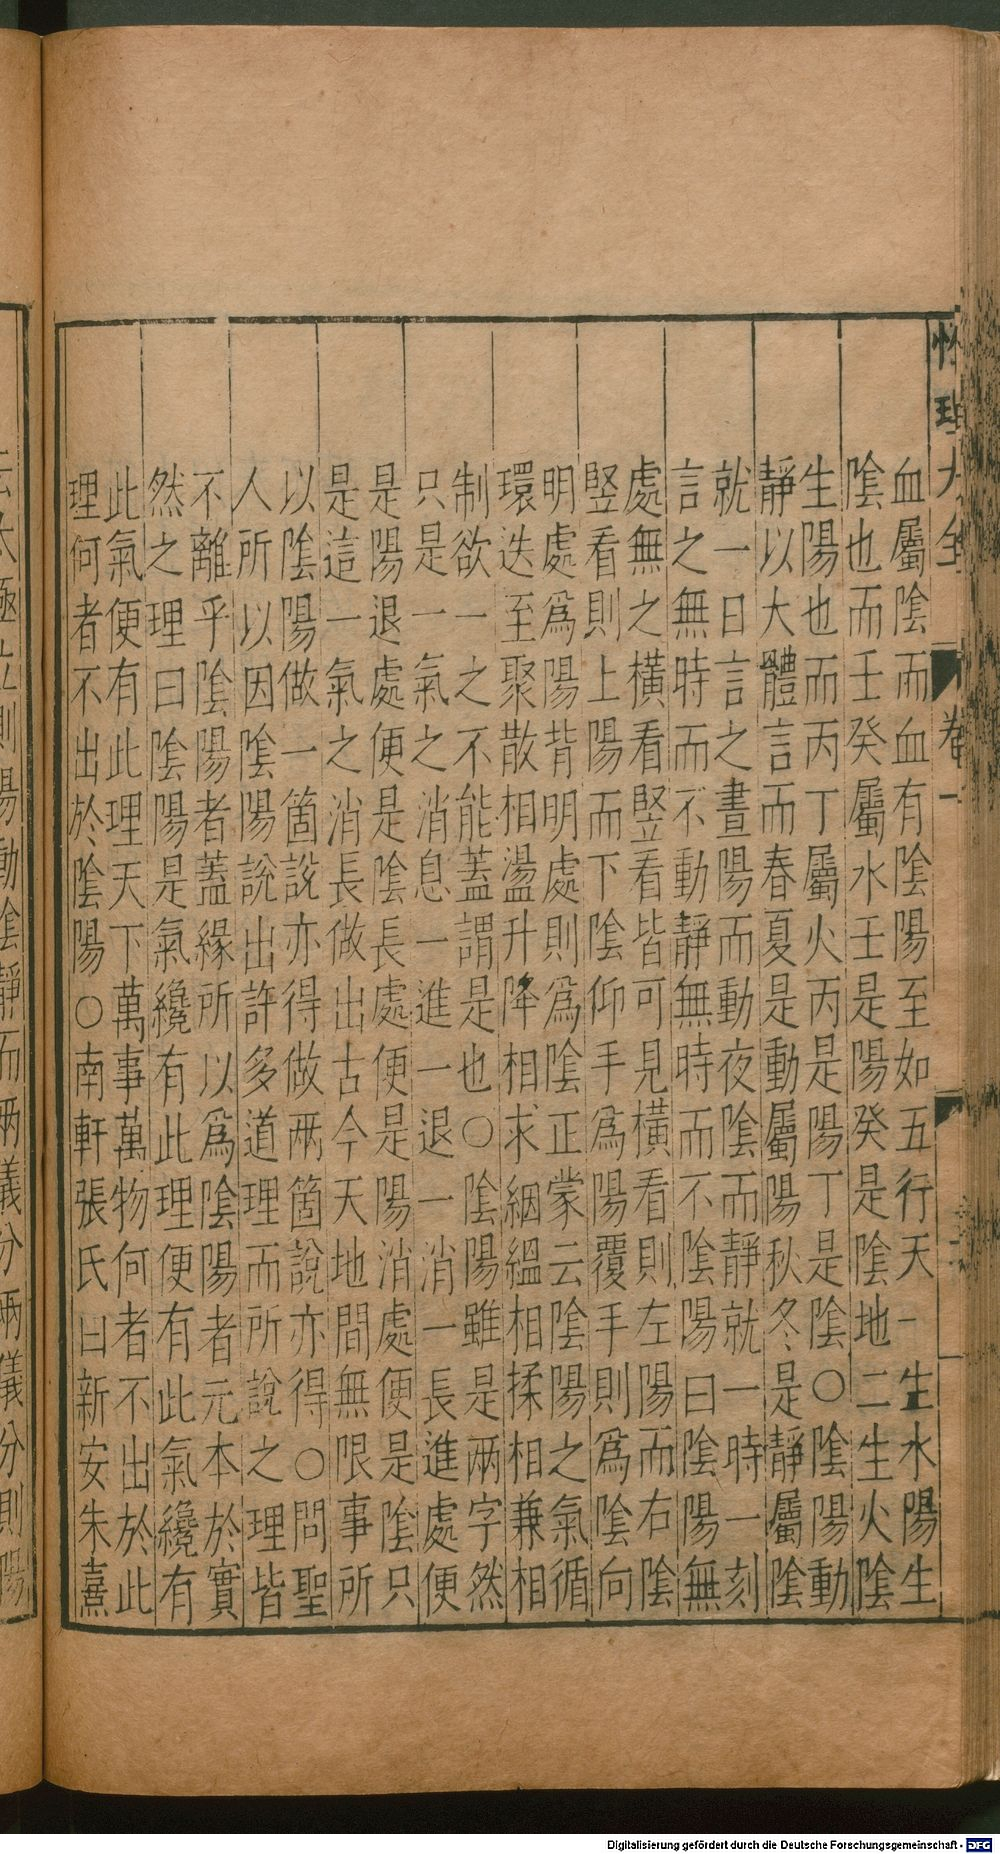 性理大全 卷一
血屬陰而血有陰陽至如五行天一生水陽生
陰也而壬癸屬水壬是陽癸是陰地二生火陰
生陽也而丙丁屬火丙是陽丁是陰○陰陽動
靜以大體言而春夏是動屬陽秋冬是靜屬陰
就一日言之晝陽而動夜陰而靜就一時一刻
言之無時而不動靜無時而不陰陽曰陰陽無
處無之橫看竪看皆可見橫看則左陽而右陰
竪看則上陽而下陰仰手爲陽覆手則爲陰向
明處爲陽背明處則爲陰正蒙云陰陽之氣循
環迭至聚散相盪升降相求絪縕相揉相兼相
制欲一之不能蓋謂是也○陰陽雖是兩字然
只是一氣之消息一進一退一消一長進處便
是陽退處便是陰長處便是陽消處便是陰只
是這一氣之消長做出古今天地間無限事所
以陰陽做一箇說亦得做兩箇說亦得○問聖
人所以因陰陽說出許多道理而所說之理皆
不離乎陰陽者蓋緣所以爲陰陽者元本於實
然之理曰陰陽是氣纔有此理便有此氣纔有
此氣便有此理天下萬事萬物何者不出於此
理何者不出於陰陽○南軒張氏曰新安朱熹
太極立則陽動陰靜而兩儀分兩儀分則陽
Digitalisierung gefördert durch die Deutsche Forschungsgemeinschaft - DFG